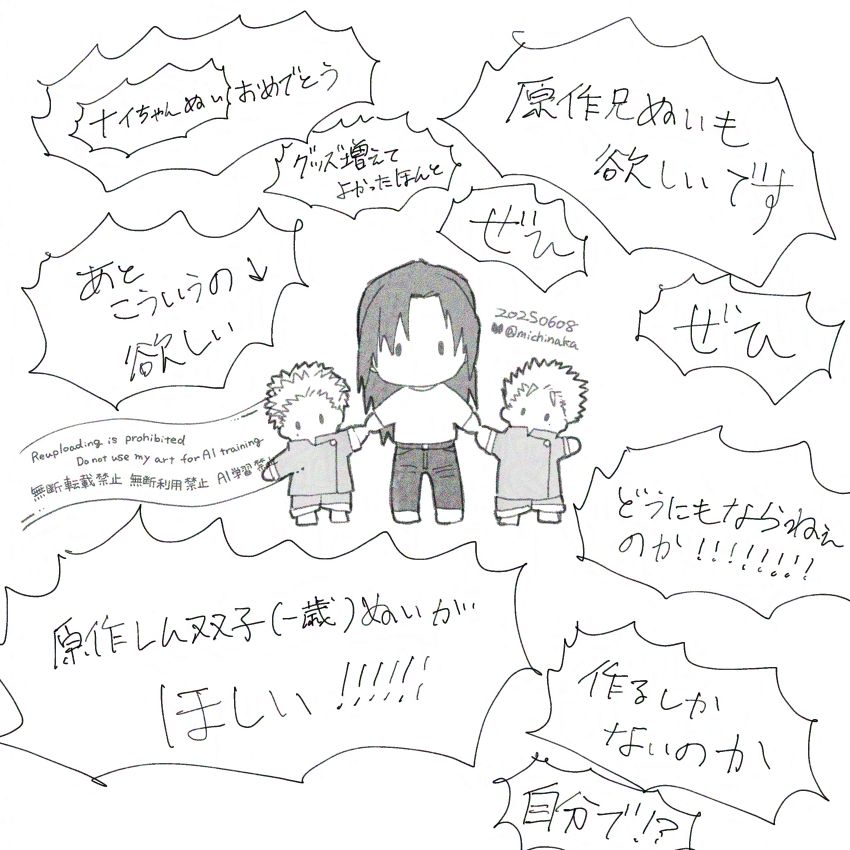 ナイちゃんぬい おめでとう
グッズ増えて
よかったほんと
原作兄ぬいも
欲しいです
ぜひ
ぜひ
あと
こういうの↓
欲しい
20250608
@michinaka
Reuploading is prohibited
Do not use my art for AI training
無断転載禁止 無断利用禁止 AI学習禁
どうにもならねぇ
のか!!!!!!!!
原作しん双子(一歳)ぬいが
ほしい!!!!!!
作るしか
ないのか
自分で!?